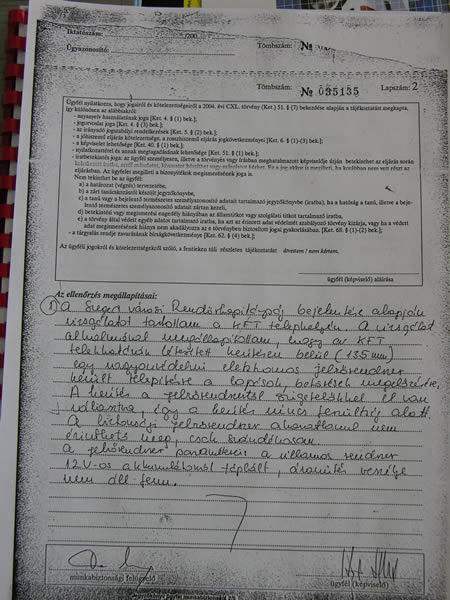 Iktatószám: /200
Ügyazonosító:
Tömbszám: №
Tömbszám: № 035135 Lapszám: 2
Ügyfél nyilatkozza, hogy jogairól és kötelezettségeiről a 2004. évi CXL. törvény (Ket.) 51. § (7) bekezdése alapján a tájékoztatást megkapta,
így különösen az alábbiakról:
- anyanyelv használatának joga (Ket. 4. § (1) bek.);
- jogorvoslat joga (Ket. 4. § (3) bek.);
- az irányadó jogszabályi rendelkezések (Ket. 5. § (2) bek.);
- a jóhiszemű eljárás kötelezettsége, a rosszhiszemű eljárás jogkövetkezményei (Ket. 6. § (1)-(3) bek.);
- a képviselet lehetősége (Ket. 40. § (1) bek.);
- nyilatkozattétel és annak megtagadásának lehetősége (Ket. 51. § (1) bek.);
- iratbetekintés joga: az ügyfél személyesen, illetve a törvényes vagy írásban meghatalmazott képviselője útján betekinthet az eljárás során
eljárásban. Az ügyfelet megilleti a bizonyítékok megismerésének joga is.
Nem tekinthet be az ügyfél:
a) a határozat (végzés) tervezetébe,
b) a zárt tanácskozásról készült jegyzőkönyvbe,
c) a tanú vagy a bejelentő természetes személyazonosító adatait tartalmazó jegyzőkönyvbe (iratba), ha a hatóság a tanú, illetve a beje-
lentő természetes személyazonosító adatait zártan kezeli,
d) betekintési vagy megismerési engedély hiányában az államtitkot vagy szolgálati titkot tartalmazó iratba,
e) a törvény által védett egyéb adatot tartalmazó iratba, ha azt az érintett adat védelmét szabályozó törvény kizárja, vagy ha a védett
adat megismerésének hiánya nem akadályozza az e törvényben biztosított jogai gyakorlásában. (Ket. 68. § (1)-(2) bek.);
- a tárgyalás rendje zavarásának bírságkövetkezménye [Ket. 62. § (4) bek.]
Az ügyfél jogokról és kötelezettségekről szóló, a fentieken túli részletes tájékoztatást átvettem / nem kértem.
ügyfél (képviselő) aláírása
Az ellenőrzés megállapításai:
1 A Szeged városi Rendőrkapitányság bejelentése alapján
vizsgálatot tartottam a KFT telephelyén. A vizsgálat
alkalmával megállapítottam, hogy az KFT
telekhatárán létesített kerítésen belül (135 mm)
egy vagyonvédelmi elektromos jelzőrendszer
került telepítésre a lopások, betörések megelőzésére.
A kerítés a jelzőrendszertől szigetelőkkel el van
választva, így a kerítés nincs feszültség alatt.
A biztonsági jelzőrendszer akaratlanul nem
érinthető meg, csak szándékosan.
A jelzőrendszer paraméterei: a villamos rendszer
12 V-os akkumulátorról táplált, áramütés veszélye
nem áll fenn.
munkabiztonsági felügyelő
ügyfél (képviselő)